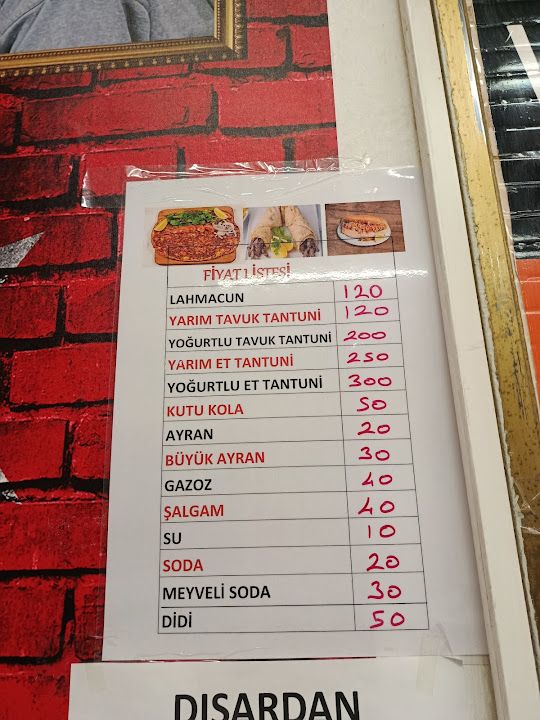 FİYAT LİSTESİ
LAHMACUN 120
YARIM TAVUK TANTUNİ 120
YOĞURTLU TAVUK TANTUNİ 200
YARIM ET TANTUNİ 250
YOĞURTLU ET TANTUNİ 300
KUTU KOLA 50
AYRAN 20
BÜYÜK AYRAN 30
GAZOZ 40
ŞALGAM 40
SU 10
SODA 20
MEYVELİ SODA 30
DİDİ 50
DIŞARDAN